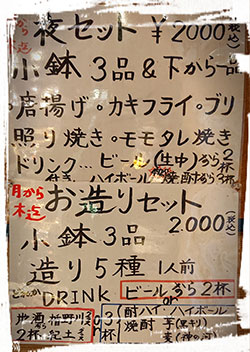 夜セット ¥2000(税込)
小鉢3品&下から一品
唐揚げ・カキフライ・ブリ
照り焼き・モモタレ焼き
ドリンク…ビール(生中)から2杯
ハイボール 焼酎から2杯
月から
お造りセット
2.000(税込)
小鉢3品
造り5種 1人前
DRINK ビールから2杯
or
地酒
2杯 紀土
3杯
酎ハイ・ハイボール
焼酎